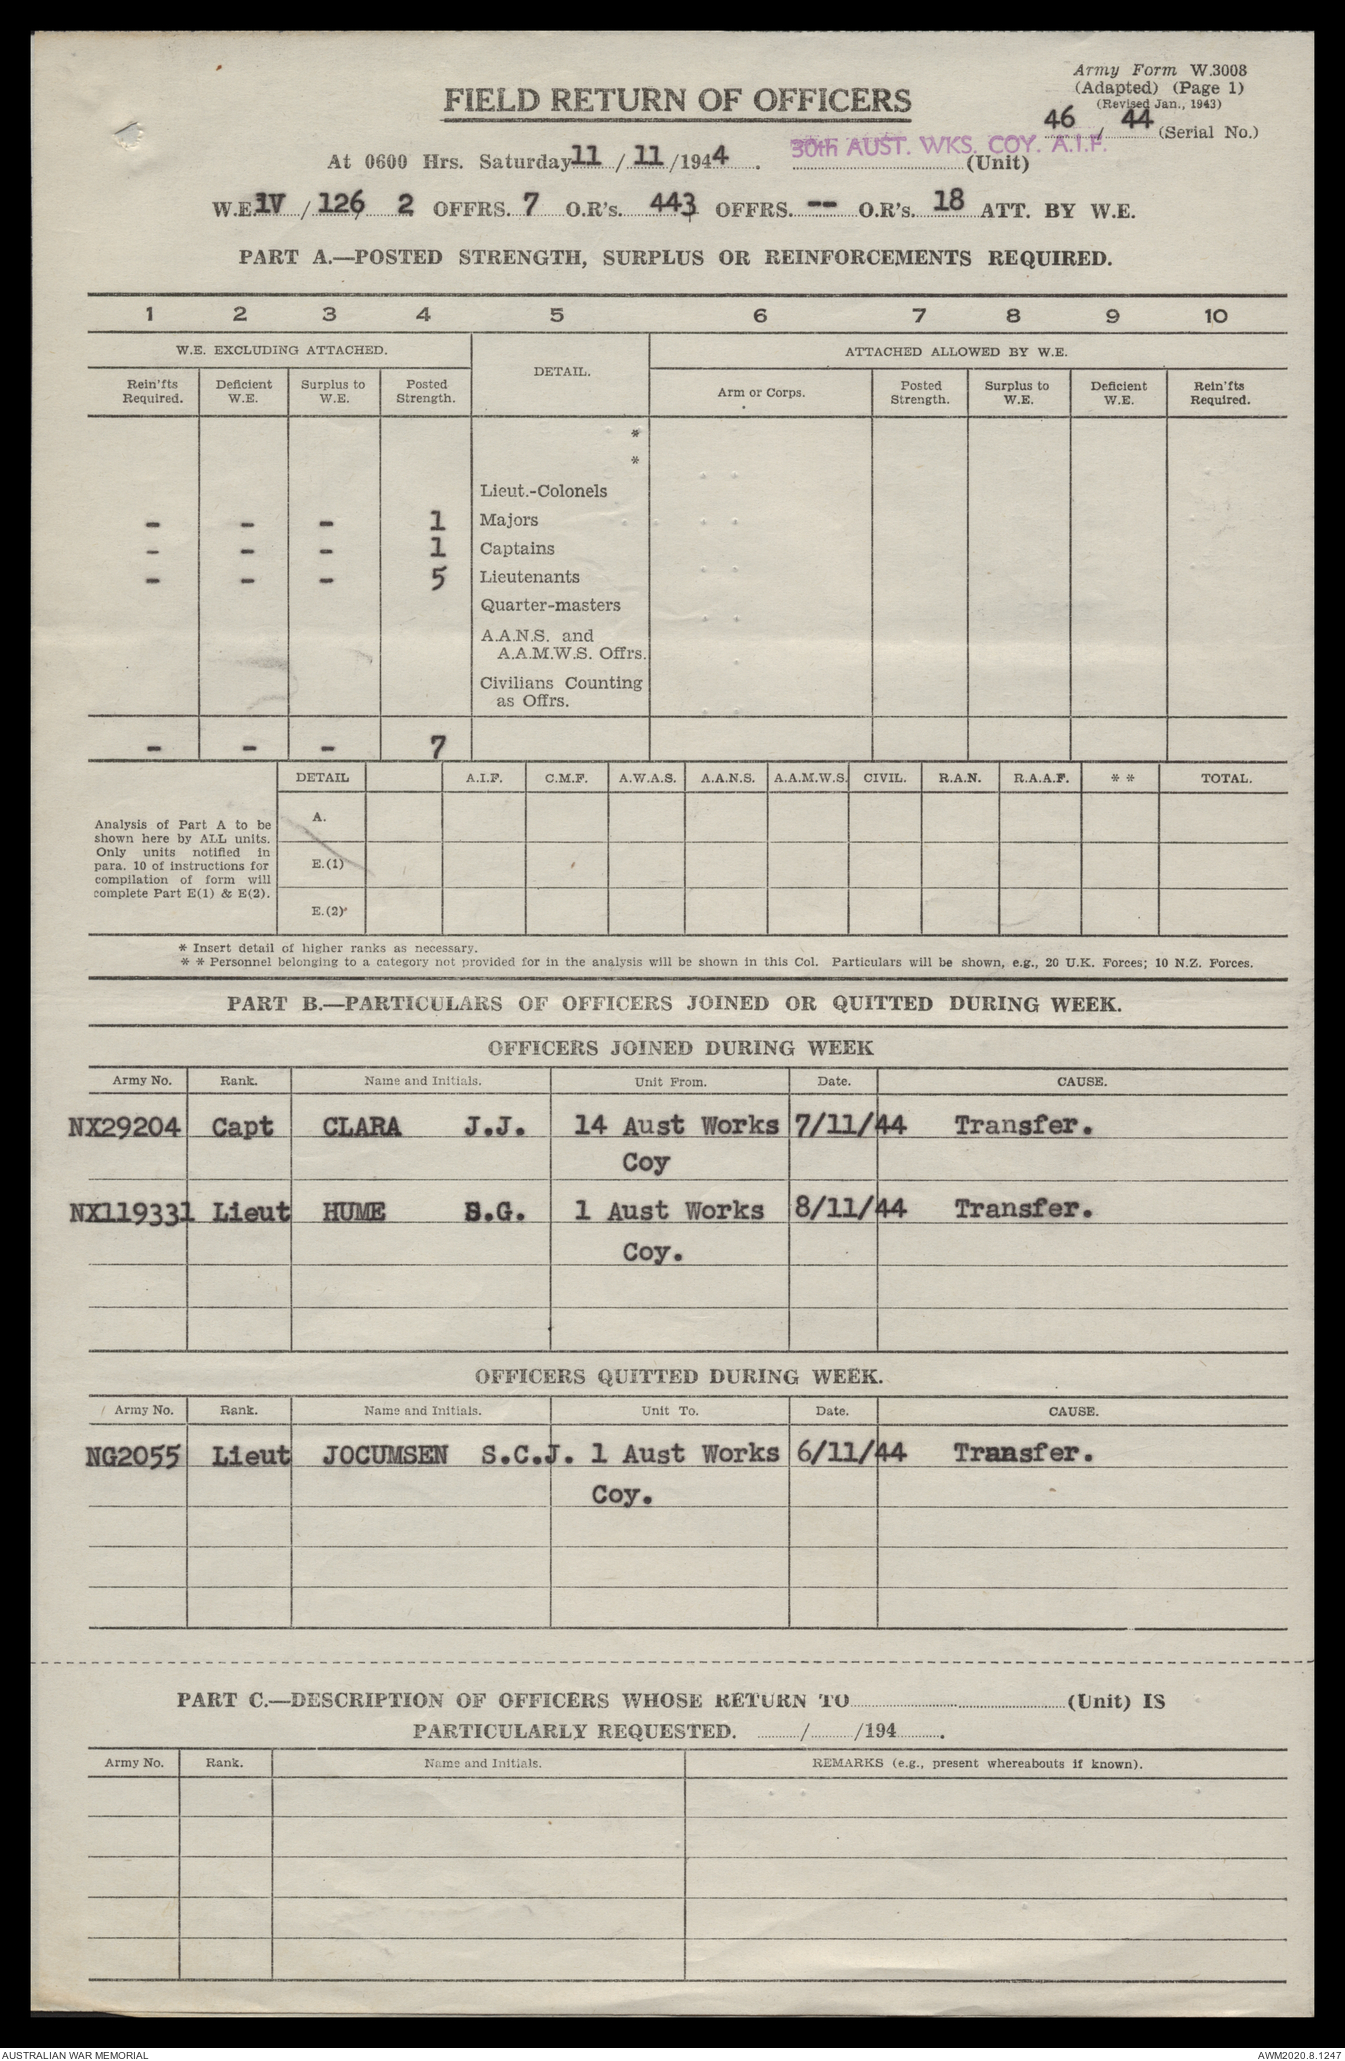 Army Form W.3008
(Adapted) (Page 1)
(Revised Jan., 1943)
FIELD RETURN OF OFFICERS
46 / 44 (Serial No.)
At 0600 Hrs. Saturday 11 / 11 /1944 . 30th AUST. WKS. COY. A.I.F. (Unit)
W.E. 1V / 126/ 2 OFFRS. 7 O.R's. 443 OFFRS. -- O.R's. 18 ATT. BY W.E.
PART A.—POSTED STRENGTH, SURPLUS OR REINFORCEMENTS REQUIRED.
1 2 3 4 5 6 7 8 9 10
W.E. EXCLUDING ATTACHED. DETAIL. ATTACHED ALLOWED BY W.E.
Rein'fts Required. Deficient W.E. Surplus to W.E. Posted Strength. Arm or Corps. Posted Strength. Surplus to W.E. Deficient W.E. Rein'fts Required.
*
*
Lieut.-Colonels
- - - 1 Majors
- - - 1 Captains
- - - 5 Lieutenants
Quarter-masters
A.A.N.S. and
A.A.M.W.S. Offrs.
Civilians Counting
as Offrs.
- - - 7
DETAIL A.I.F. C.M.F. A.W.A.S. A.A.N.S. A.A.M.W.S. CIVIL. R.A.N. R.A.A.F. * * TOTAL.
Analysis of Part A to be
shown here by ALL units.
Only units notified in
para. 10 of instructions for
compilation of form will
complete Part E(1) & E(2).
A.
E.(1)
E.(2)
* Insert detail of higher ranks as necessary.
* * Personnel belonging to a category not provided for in the analysis will be shown in this Col. Particulars will be shown, e.g., 20 U.K. Forces; 10 N.Z. Forces.
PART B.—PARTICULARS OF OFFICERS JOINED OR QUITTED DURING WEEK.
OFFICERS JOINED DURING WEEK
Army No. Rank. Name and Initials. Unit From. Date. CAUSE.
NX29204 Capt CLARA J.J. 14 Aust Works 7/11/44 Transfer.
Coy
NX119331 Lieut HUME S.G. 1 Aust Works 8/11/44 Transfer.
Coy.
OFFICERS QUITTED DURING WEEK.
Army No. Rank. Name and Initials. Unit To. Date. CAUSE.
NG2055 Lieut JOCUMSEN S.C.J. 1 Aust Works 6/11/44 Transfer.
Coy.
PART C.—DESCRIPTION OF OFFICERS WHOSE RETURN TO (Unit) IS
PARTICULARLY REQUESTED. / /194 .
Army No. Rank. Name and Initials. REMARKS (e.g., present whereabouts if known).
AUSTRALIAN WAR MEMORIAL AWM2020.8.1247